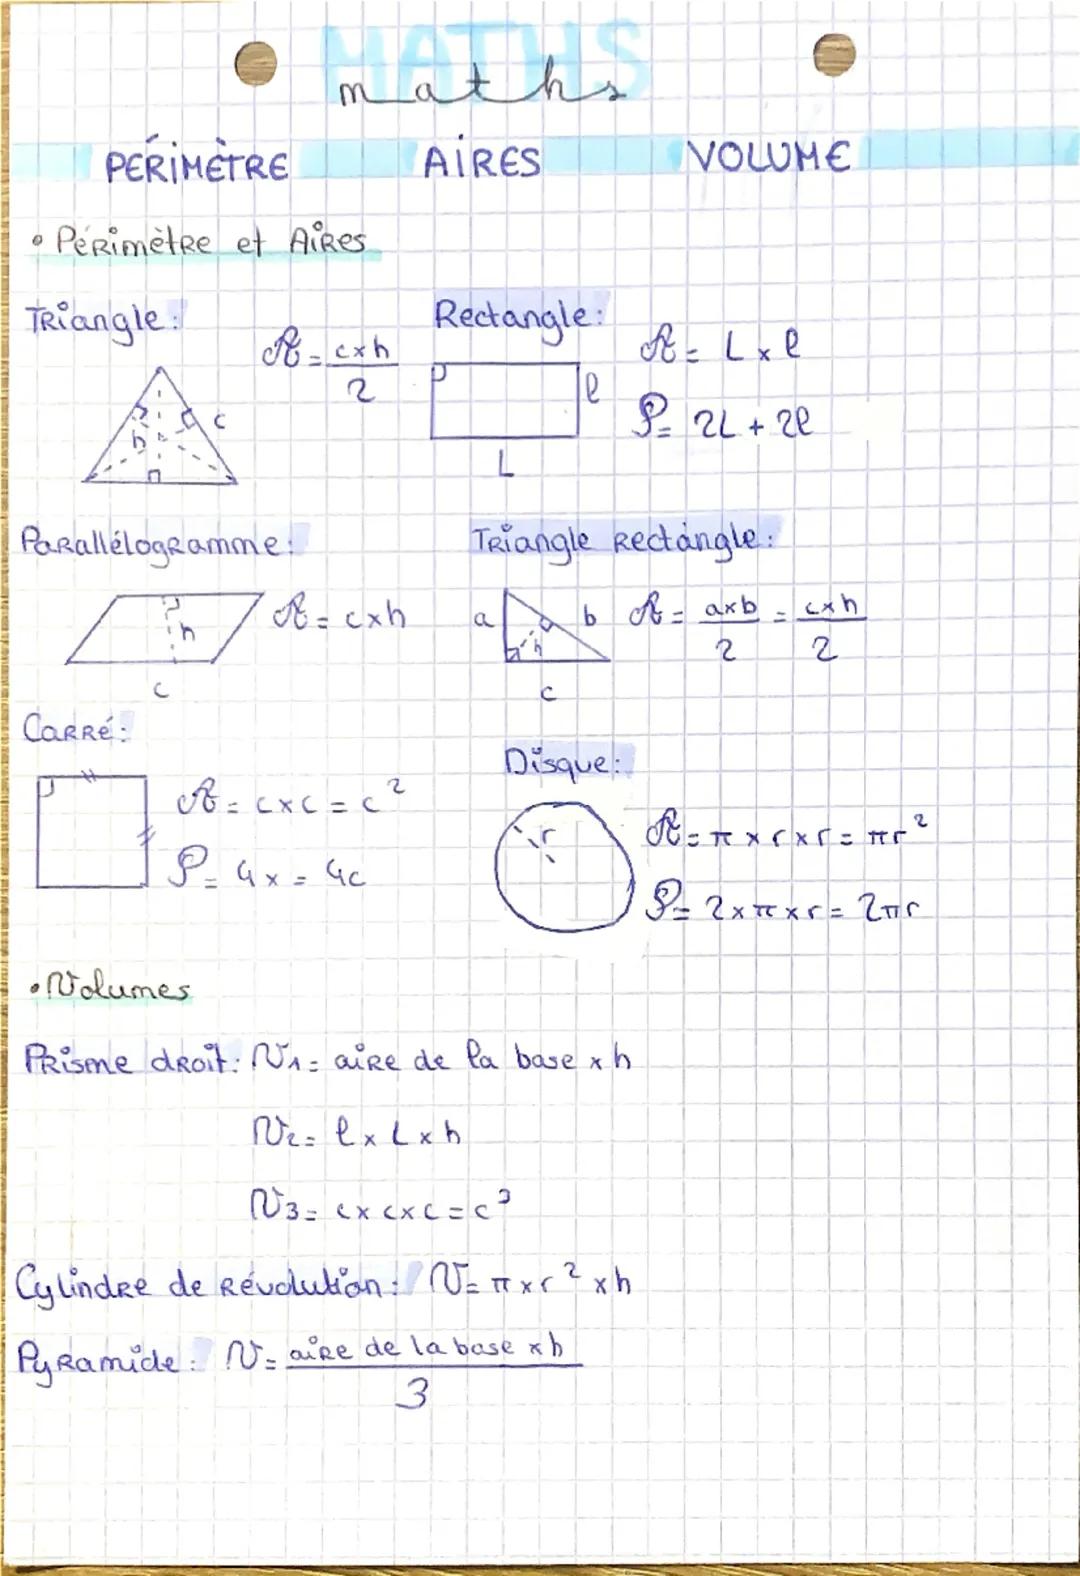 MATHS
maths
PÉRIMÈTRE AIRES VOLUME
• Périmètre et Aires
Triangle:
A = c×h/2
h
c
Rectangle:
A = L × l
P = 2L + 2l
l
L
Parallélogramme:
A = c×h
h
c
Triangle rectangle:
a b A = a×b/2 = c×h/2
h
c
Carré:
A = c×c = c²
P = 4× = 4c
Disque:
r
A = π×r×r = πr²
P = 2×π×r = 2πr
• Volumes
Prisme droit: V1 = aire de la base × h
V2 = l × L × h
V3 = c×c×c = c³
Cylindre de révolution: V = π×r²×h
Pyramide: V = aire de la base × h
3